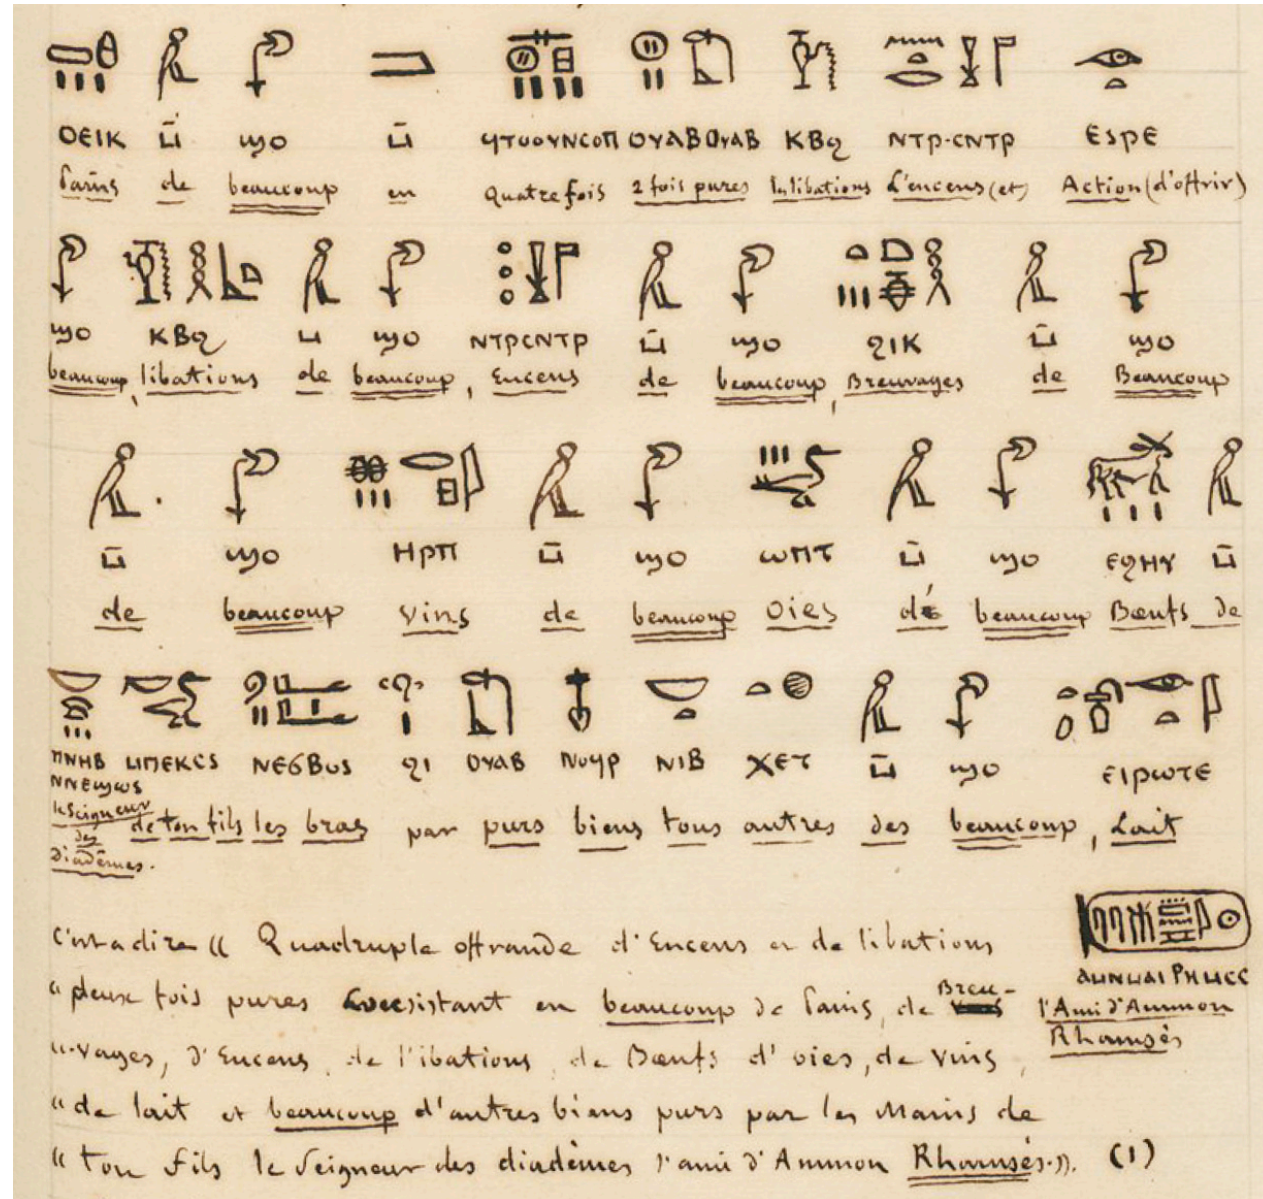 ⲟⲉⲓⲕ ⲙ̄ ϣⲟ ⲙ̄ ϥⲧⲟⲟⲩⲛⲥⲟⲡ ⲟⲩⲁⲃⲟⲩⲁⲃ ⲕⲃϩ ⲛⲧⲣ·ⲥⲛⲧⲣ ⲉⲓⲣⲉ
Pains de beaucoup en Quatre fois 2 fois pures les libations L'encens (et) Action (d'offrir)
ϣⲟ ⲕⲃϩ ⲙ ϣⲟ ⲛⲧⲣⲥⲛⲧⲣ ⲙ̄ ϣⲟ ϩⲓⲕ ⲙ̄ ϣⲟ
beaucoup, libations de beaucoup, Encens de beaucoup, Breuvages de Beaucoup
ⲙ̄ ϣⲟ ⲏⲣⲡ ⲙ̄ ϣⲟ ⲱⲡⲧ ⲙ̄ ϣⲟ ⲉϩⲏⲩ ⲙ̄
de beaucoup Vins de beaucoup Oies de beaucoup Bœufs de
ⲡⲛⲏⲃ ⲙⲡⲉⲕⲥⲓ ⲛⲉϭⲃⲟⲓ ϩⲓ ⲟⲩⲁⲃ ⲛⲟⲩϥⲣ ⲛⲓⲃ ⲭⲉⲧ ⲙ̄ ϣⲟ ⲉⲓⲣⲱⲧⲉ
ⲛⲛⲉϣⲱⲥ
le Seigneur des diadêmes. de ton fils les bras par purs biens tous autres des beaucoup, Lait
C'est a dire « Quadruple offrande d'Encens et de libations
« deux fois pures consistant en beaucoup de Pains, de Breu-
«-vages, d'Encens, de libations, de Bœufs d'oies, de Vins,
« de lait et beaucoup d'autres biens purs par les Mains de
« ton fils le Seigneur des diadêmes l'ami d'Ammon Rhamsés.». (1)
ⲁⲙⲛⲙⲁⲓ ⲣⲏⲙⲥⲥ
l'Ami d'Ammon
Rhamsès